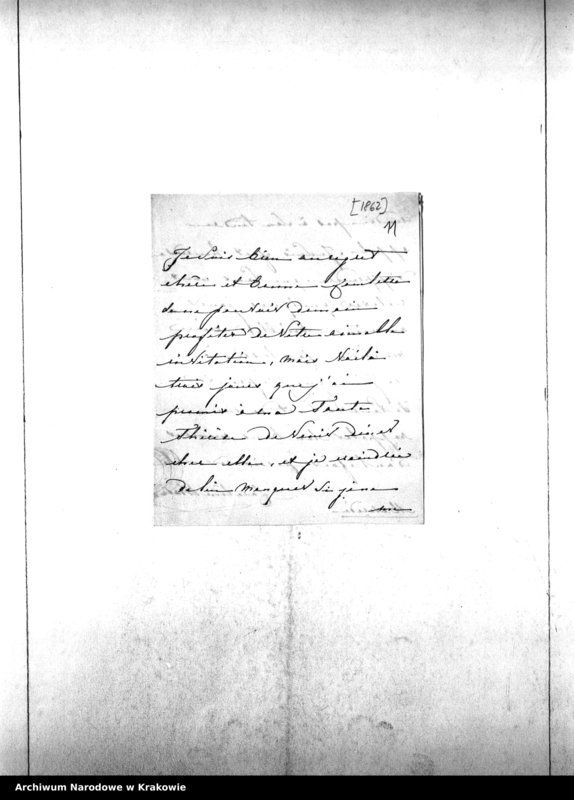 [1862]
11
Je suis bien au regret
chère et bonne
de ne pouvoir demain
profiter de Votre aimable
invitation, mais Voilà
trois jours que j'ai
promis à ma Tante
Thérèse de Venir diner
chez elle, et je craindrai
de lui manquer si je ne
Archiwum Narodowe w Krakowie